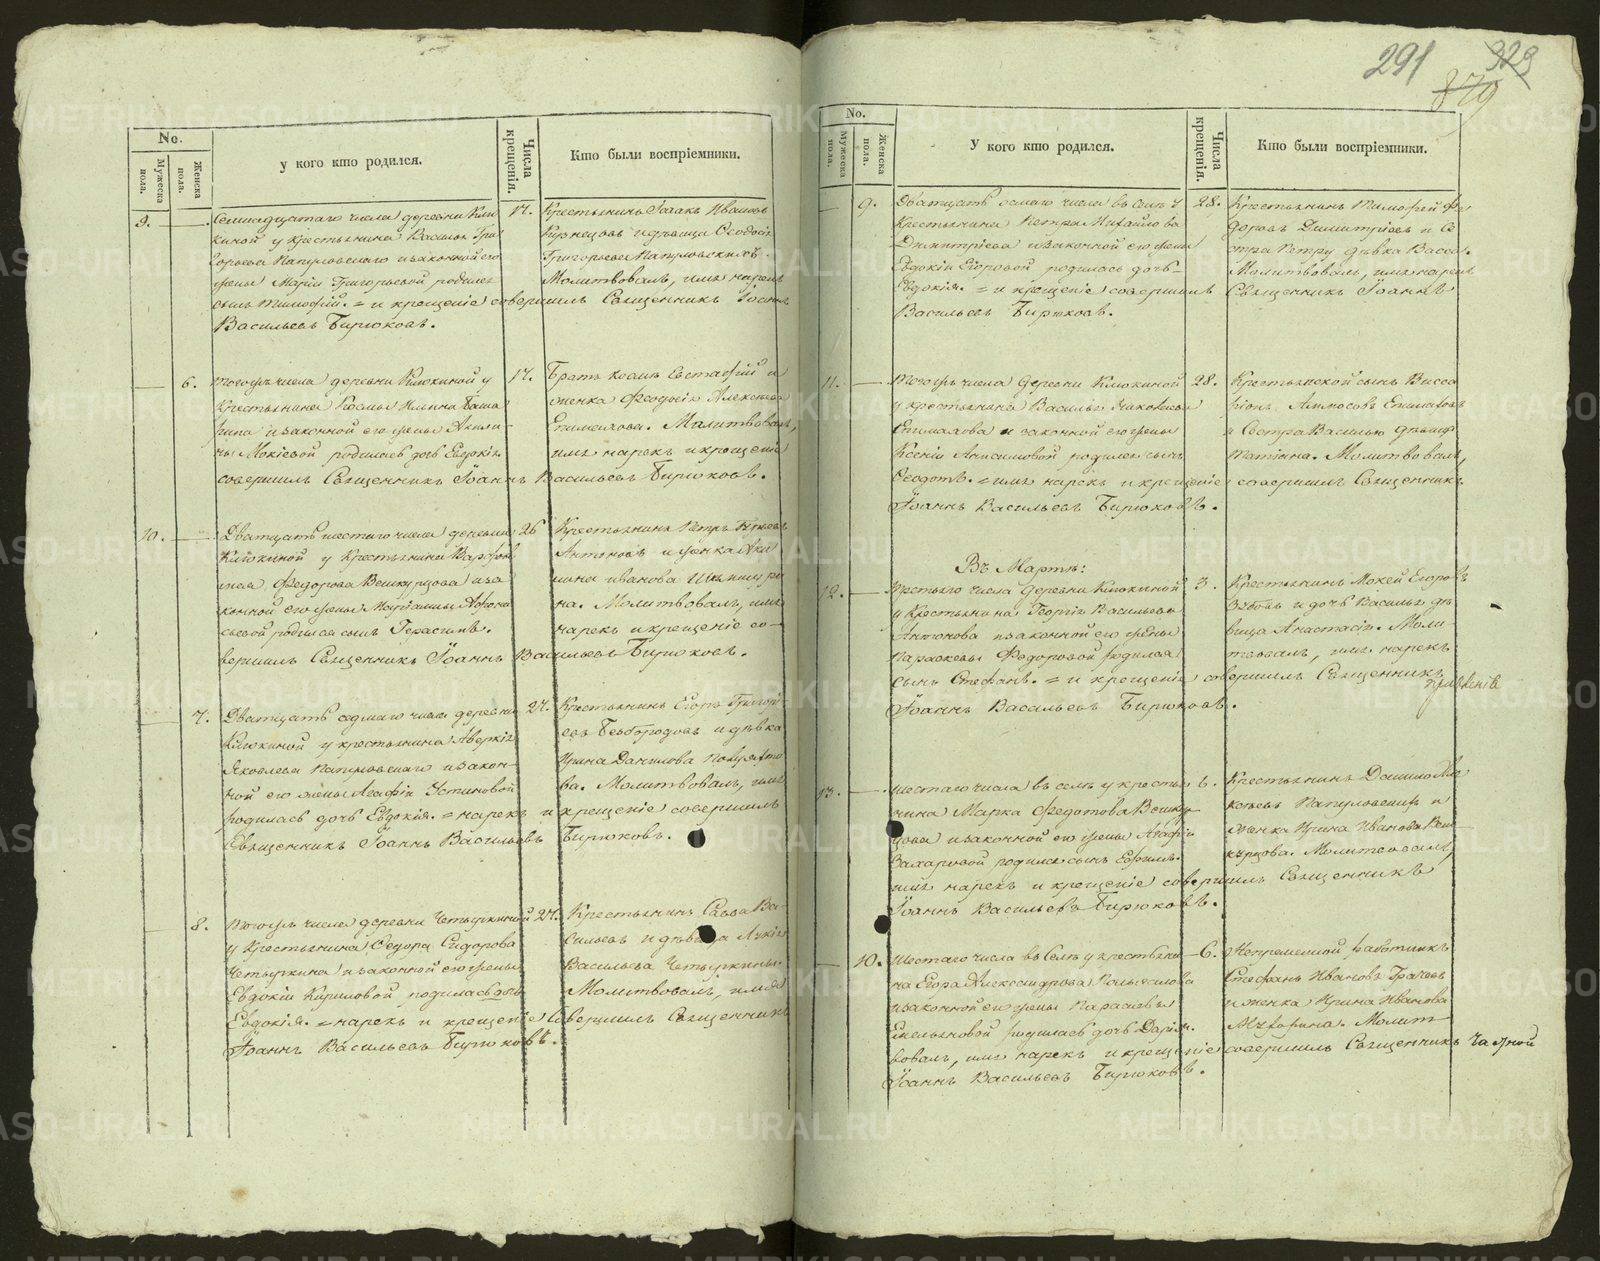 291
329
879
No.
Мужеска пола.
Женска пола.
у кого кто родился.
Числа крещенія.
Кто были воспріемники.
9.
Семнадцатаго числа деревни Клю
киной у крестьянина Василья Гри
горьева Папуловскаго и законной его
жены Маріи Григорьевой родился
сынъ Тимофѣй. = и крещеніе совершилъ Священникъ Іоаннъ
Васильевъ Бирюковъ.
17.
Крестьянинъ Исаакъ Ивановъ
Кузнецовъ и дѣвица Ѳеодосія
Григорьева Папуловскихъ.
Молитвовалъ, имя нарекъ
6.
Тогожъ числа деревни Клюкиной у
крестьянина Космы Ильина
и законной его жены Акили-
ны Мокіевой родилась дочь Евдокія
совершилъ Священникъ Іоаннъ Васильевъ Бирюковъ.
17.
Братъ Космы Евстафій и
женка Феодосія Алексѣева
Епималова. Молитвовалъ,
имя нарекъ и крещеніе
10.
Дватцать шестаго числа деревни
Клюкиной у крестьянина Варфоло
мея Федорова Вешкурцова и за
конной его жены Марѳы Афона
сьевой родился сынъ Герасимъ.
вершилъ Священникъ Іоаннъ Васильевъ Бирюковъ.
26
Крестьянинъ Петръ
Антоновъ и женка Аки
лина Иванова
на. Молитвовалъ, имя
нарекъ и крещеніе со-
7.
Дватцать седмаго числа деревни
Клюкиной у крестьянина Аверкія
Яковлева Папуловскаго и закон-
ной его жены Агафіи Устиновой
родилась дочь Евдокія. = нарекъ и крещеніе совершилъ
Священникъ Іоаннъ Васильевъ Бирюковъ.
27.
Крестьянинъ Егоръ Григорь
евъ Безбородовъ и дѣвка
Ирина Данилова
ва. Молитвовалъ, имя
8.
Тогожъ числа деревни Четыркиной
у крестьянина Ѳедора Сидорова
Четыркина и законной его жены
Евдокіи Кириловой родилась дочь
Евдокія. = нарекъ и крещеніе совершилъ Священникъ
Іоаннъ Васильевъ Бирюковъ.
27.
Крестьянинъ Савва Ва-
сильевъ и дѣвица Лукія
Васильева Четыркины.
Молитвовалъ, имя
No.
Мужеска пола.
Женска пола.
У кого кто родился.
Числа крещенія.
Кто были воспріемники.
9.
Дватцать осмаго числа въ селѣ у
крестьянина Петра Михайлова
Димитріева и законной его жены
Евдокіи Егоровой родилась дочь
Евдокія. = и крещеніе совершилъ
Васильевъ Бирюковъ.
28.
Крестьянинъ Тимофей Фе
доровъ Димитріевъ и се
стра Петру дѣвка Васса.
Молитвовалъ, имя нарекъ
Священникъ Іоаннъ
11.
Тогожъ числа деревни Клюкиной
у крестьянина Василья Яковлева
Епималова и законной его жены
Ксеніи Анисимовой родился сынъ
Ѳеодотъ. = имя нарекъ и крещеніе совершилъ Священникъ
Іоаннъ Васильевъ Бирюковъ.
28.
Крестьянской сынъ Висса
ріонъ Аммосовъ Епималовъ
и сестра Василью дѣвица
Татіяна. Молитвовалъ,
Въ Мартѣ:
12.
Третьяго числа деревни Клюкиной
у крестьянина Георгія Васильева
Антонова и законной его жены
Параскевы Федоровой родился
сынъ Стефанъ. = и крещеніе совершилъ Священникъ
Іоаннъ Васильевъ Бирюковъ.
3.
Крестьянинъ Мокей Егоровъ
Зубовъ и дочь Василья дѣ
вица Анастасія. Моли-
твовалъ, имя нарекъ
13.
Шестаго числа въ селѣ у крестья
нина Марка Федотова Вешкур
цова и законной его жены Агафіи
Захаровой родился сынъ Ефимъ.
имя нарекъ и крещеніе совершилъ Священникъ
Іоаннъ Васильевъ Бирюковъ.
6.
Крестьянинъ Данило
Папуловскій и
женка Ирина Иванова Веш
курцова. Молитвовалъ,
10.
Шестаго числа въ селѣ у крестьяни
на Егора Александрова
и законной его жены Парасковьи
Емельяновой родилась дочь Дарія.
вовалъ, имя нарекъ и крещеніе совершилъ Священникъ
Іоаннъ Васильевъ Бирюковъ.
6.
Непременной работникъ
Стефанъ Ивановъ Грачевъ
и женка Ирина Иванова
Молит
METRIKI.GASO-URAL.RU